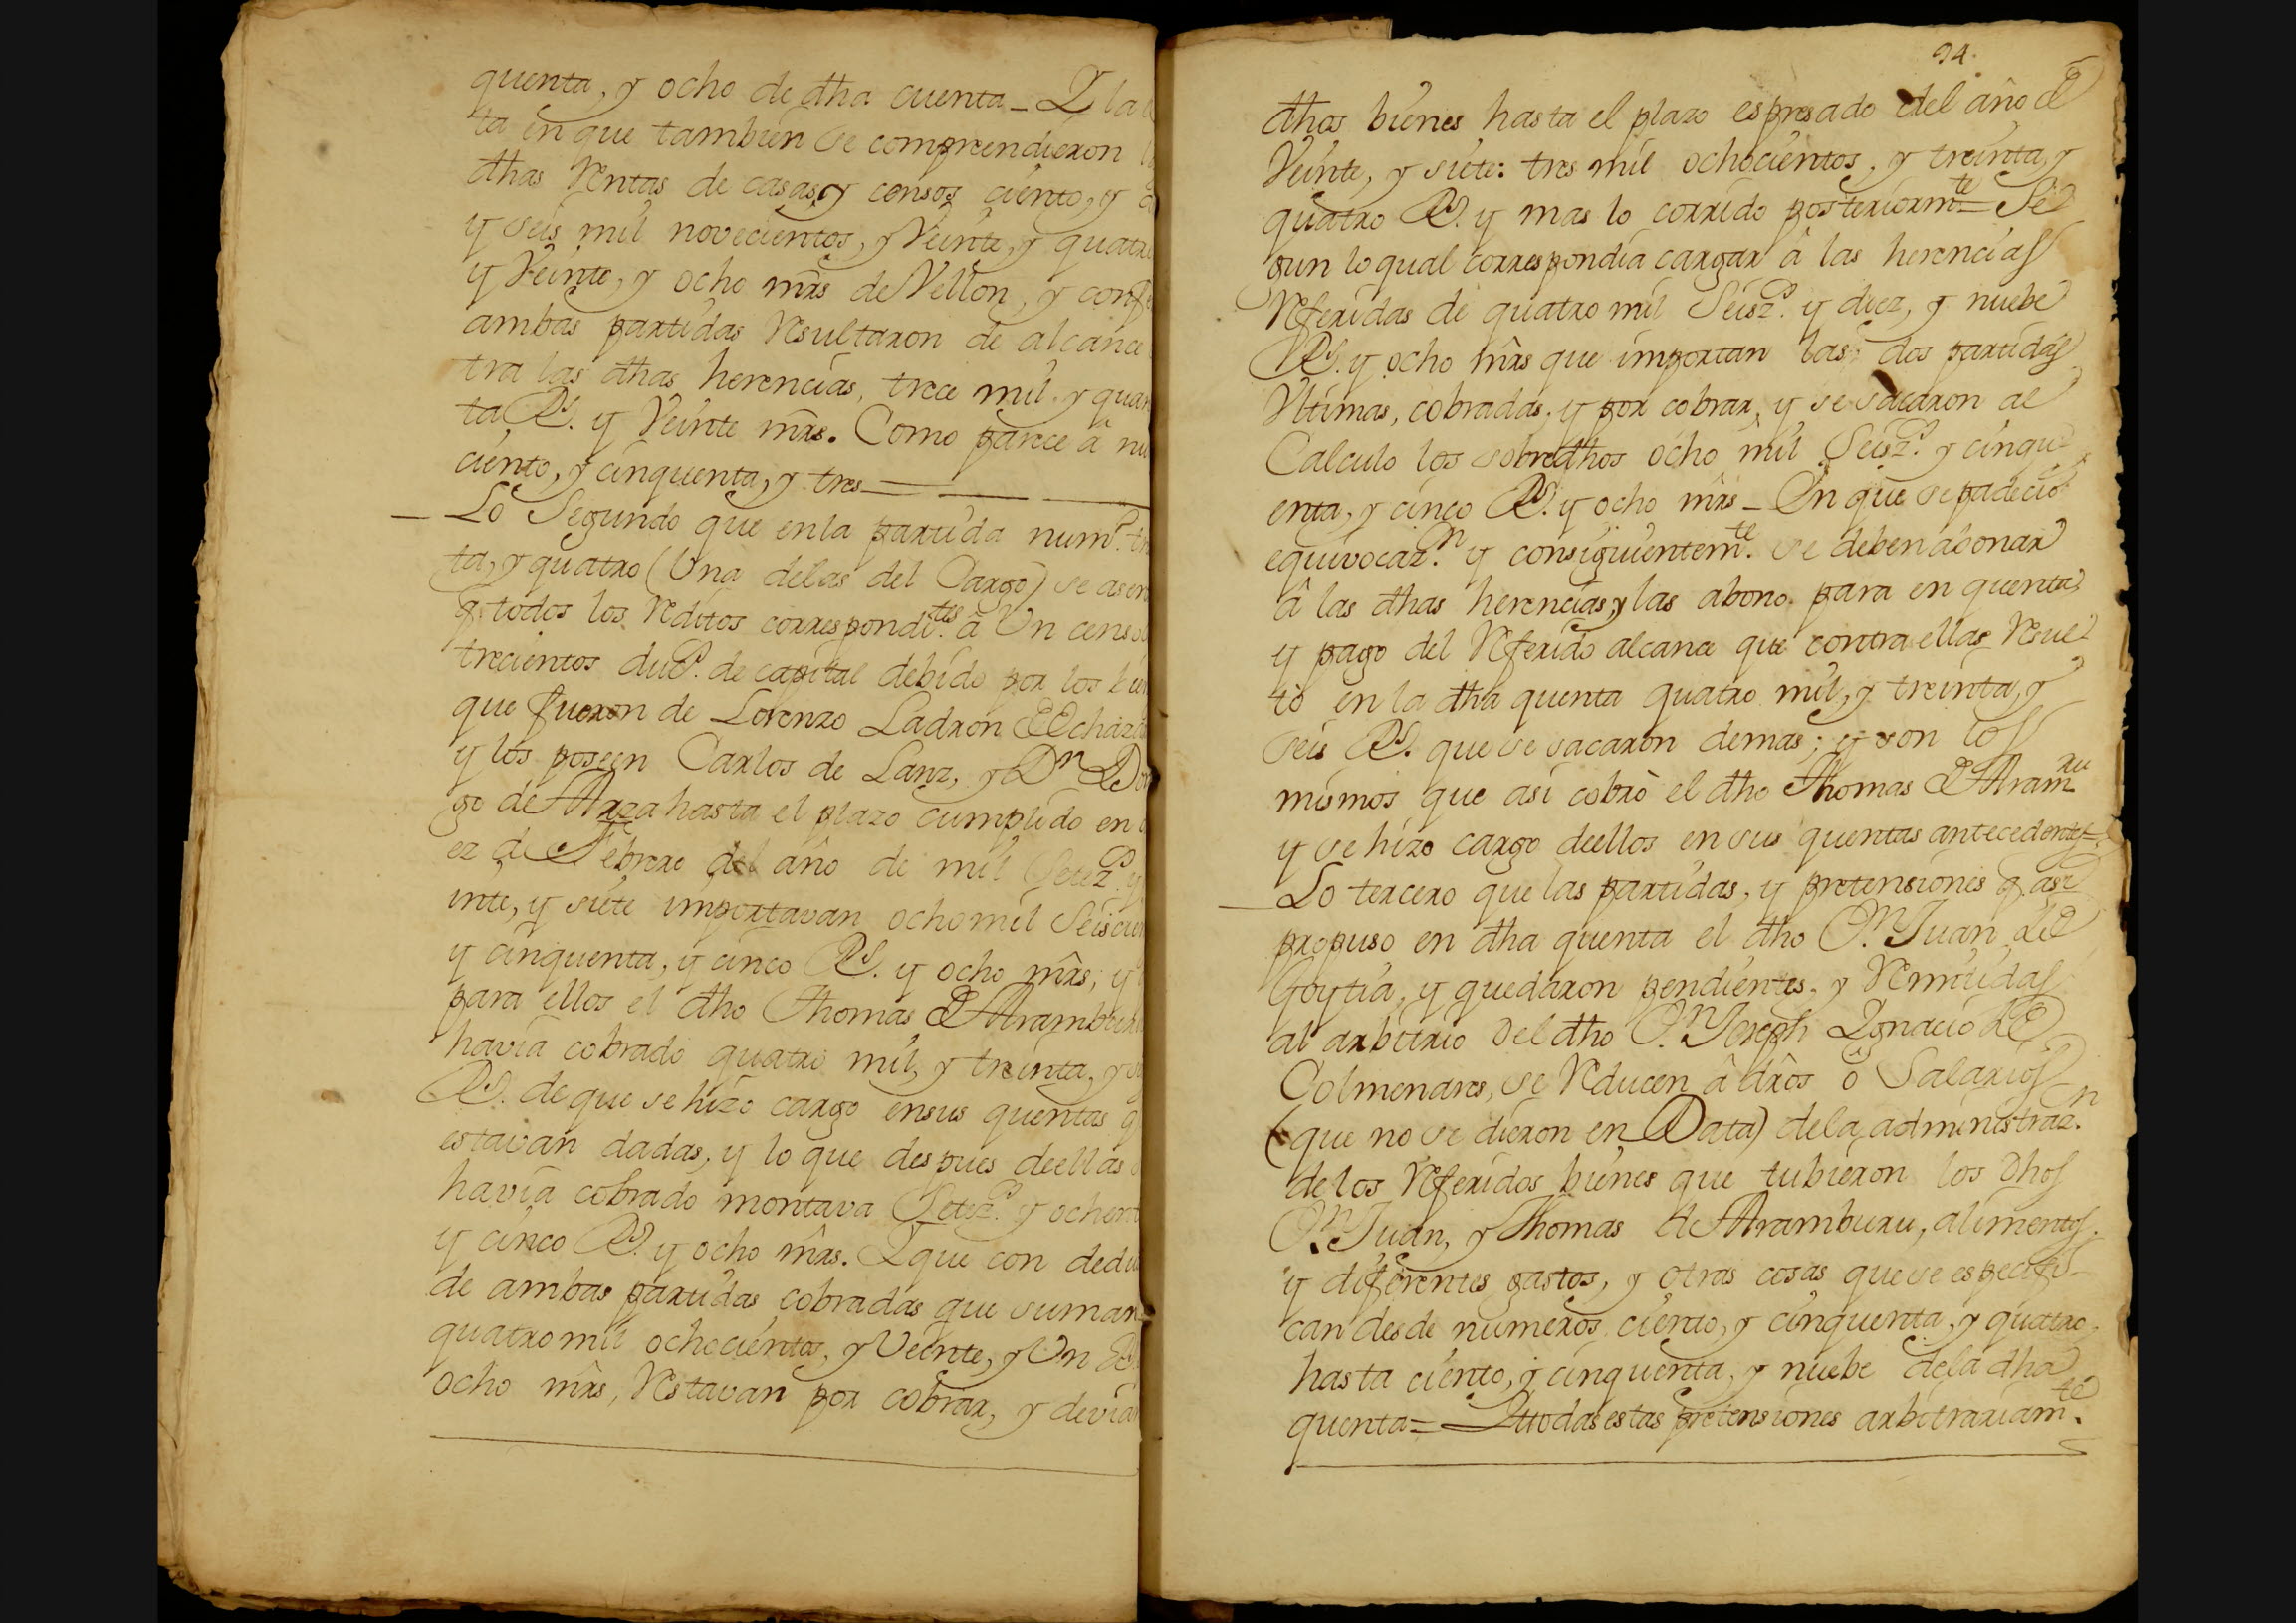 quenta, y ocho de dha cuenta _ Y la
ta en que tambien se comprendieron
dhas Rentas de casas, y censos ciento, y
y seis mil novecientos, y Veinte, y quatro
y Veinte, y ocho mrs de Vellon, y conf
ambas partidas Resultaron de alcance
tra las dhas herencias, trece mil y quar
ta Rs. y Veinte mrs. Como parece â nu
ciento, y cinquenta, y tres =
_ Lo Segundo que en la partida numº. tr
ta, y quatro (Una de las del Cargo) se asen
q todos los Reditos correspondi.tes â Un censo
trecientos duds. de capital debido por los bien
que fueron de Lorenzo Ladron de Echaz
y los poseen Carlos de Lanz, y Dn Do
go de Arza hasta el plazo cumplido en
ez de Febrero del año de mil Setezs. y
inte, y siete importavan ocho mil Seiscien
y cinquenta, y cinco Rs. y ocho mrs; y
para ellos el dho Thomas de Arambur
havia cobrado quatro mil, y treinta, y s
Rs. de que se hizo cargo en sus quentas q
estavan dadas, y lo que despues de ellas
havia cobrado montava Setezs. y ochent
y cinco Rs. y ocho mrs. Y que con dedu
de ambas partidas cobradas que suman
quatro mil ochocientos, y Veinte, y Un Rs
ocho mrs, Restavan por cobrar, y devian
94.
dhos bienes hasta el plazo espresado del año de
Veinte, y siete: tres mil ochocientos, y treinta, y
quatro Rs. y mas lo corrido posteriormte = Se
gun lo qual correspondia cargar â las herencias
Referidas de quatro mil Seiszs. y diez, y nuebe
Rs. y ocho mrs que importan las dos partidas
Ultimas, cobradas, y por cobrar, y se sacaron al
Calculo los sobredhos ocho mil Seiszs. y cinqu
enta, y cinco Rs. y ocho mrs _ En que se padecio
equivocazn. y consiguientemte. se deben abonar
â las dhas herencias, y las abono para en quenta
y pago del Referido alcance que contra ellas Resul
tò en la dha quenta quatro mil, y treinta, y
seis Rs. que se sacaron demas; y son los
mismos que asi cobrò el dho Thomas de Aramru
y se hizo cargo de ellos en sus quentas antecedentes =
_ Lo tercero que las partidas, y pretensiones q asi
propuso en dha quenta el dho Dn. Juan de
Goytia, y quedaron pendientes, y Remitidas
al arbitrio del dho Dn. Joseph Ignacio de
Colmenares, se Reducen â dros ô Salarios
(que no se dieron en Data) de la administrazn.
de los Referidos bienes que tubieron los Dhos
Dn. Juan, y Thomas de Aramburu, alimentos.
y diferentes gastos, y otras cosas que se especifi
can desde numeros ciento, y cinquenta, y quatro,
hasta ciento, y cinquenta, y nuebe de la dha
quenta = Y todas estas pretensiones arbitrariamte.